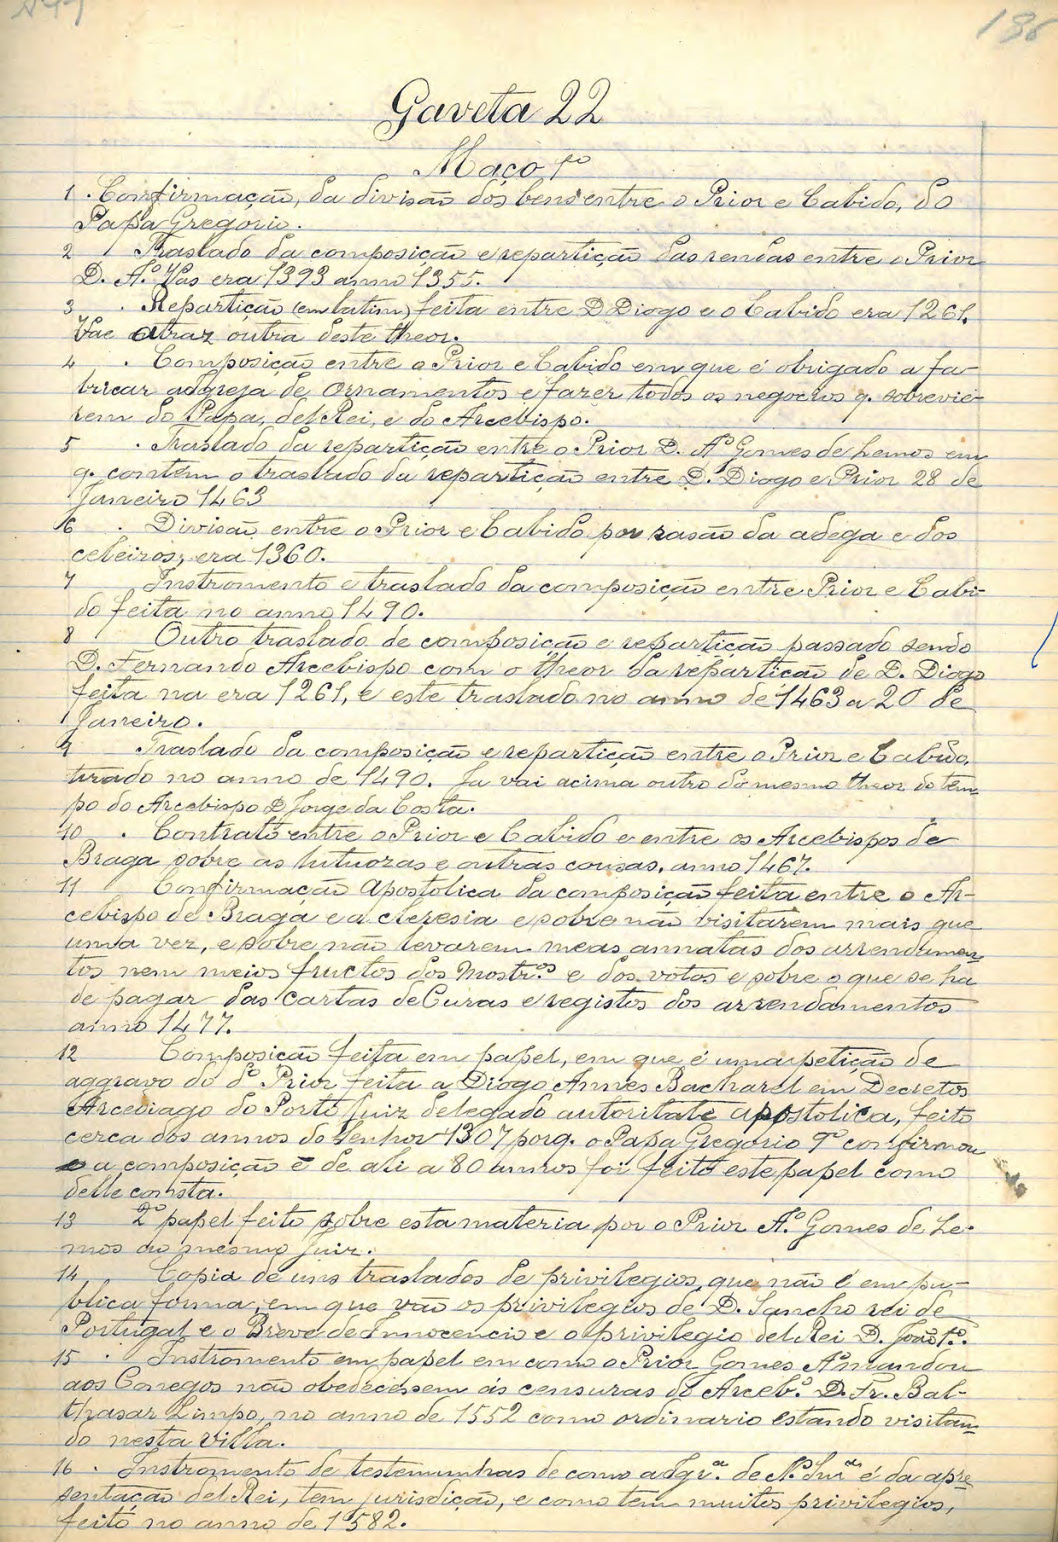 Gaveta 22
Maço 1º
1 . Confirmação, da divisão dos bens entre o Prior e Cabido, do
Papa Gregorio.
2 Traslado da composição e repartição das rendas entre o Prior
D. Aº Vas era 1393 anno 1355.
3 . Repartição (em latim) feita entre D Diogo e o Cabido era 1261.
Vae atraz outra deste theor.
4 . Composição entre o Prior e Cabido em que é obrigado a fa-
bricar a Igreja de Ornamentos e fazer todos os negocios q. sobrevie-
rem do Papa, del Rei, e do Arcebispo.
5 . Traslado da repartição entre o Prior D. Aº Gomes de Lemos em
q. contem o traslado da repartição entre D. Diogo e Prior 28 de
Janeiro 1463
6 . Divisão entre o Prior e Cabido por rasão da adega e dos
celeiros, era 1360.
7 Instromento e traslado da composição entre Prior e Cabi-
do feita no anno 1490.
8 Outro traslado de composição e repartição passado sendo
D. Fernando Arcebispo com o theor da repartição de D. Diogo
feita na era 1261, e este traslado no anno de 1463 a 20 de
Janeiro.
9 Traslado da composição e repartição entre o Prior e Cabido,
tirado no anno de 1490. Ja vai acima outro do mesmo theor do tem-
po do Arcebispo D Jorge da Costa.
10 . Contrato entre o Prior e Cabido e entre os Arcebispos de
Braga sobre as lutuozas e outras cousas, anno 1467.
11 Confirmação Apostolica da composição feita entre o Ar-
cebispo de Braga e a cleresia e sobre não visitarem mais que
uma vez, e sobre não levarem meas annatas dos arrendamen
tos nem meios fructos dos Mostr.os e dos votos e sobre o que se ha
de pagar das cartas de Curas e registos dos arrendamentos
anno 1477.
12 Composição feita em papel, em que é uma petição de
aggravo do dº Prior feita a Diogo Annes Bacharel em Decretos
Arcediago do Porto Juiz delegado autoritate apostolica, feito
cerca dos annos do Senhor 1307 porq. o Papa Gregorio 9º confirmou
a composição e de ali a 80 annos foi feito este papel como
delle consta.
13 2º papel feito sobre esta materia por o Prior Aº Gomes de Le-
mos ao mesmo Juiz.
14 Copia de uns traslados de privilegios, que não é em pu-
blica forma, em que vão os privilegios de D. Sancho rei de
Portugal e o Breve de Innocencio e o privilegio del Rei D. João 1º.
15 . Instromento em papel em como o Prior Gomes Aº mandou
aos Conegos não obedecessem ás censuras do Arceb.º D. Fr. Bal-
thasar Limpo, no anno de 1552 como ordinario estando visitan-
do nesta Villa.
16 . Instromento de testemunhas de como a Igr.ª de N. Snrª é da apre
sentação del Rei, tem jurisdição, e como tem muitos privilegios,
feito no anno de 1582.